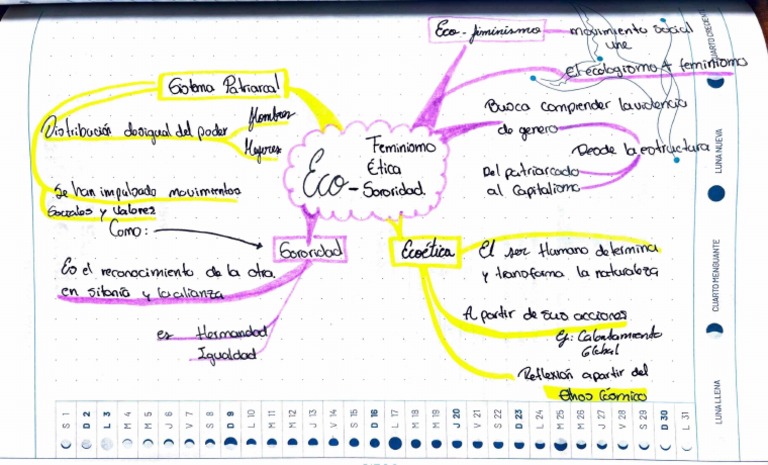 Eco-
Feminismo
Ética
Sororidad.
Eco-fiminismo
movimiento social
une
El ecologismo + feminismo
Busca comprender la violencia
de genero
Desde la estructura
Del patriarcado
al Capitalismo
Sistema Patriarcal
Distribución desigual del poder
Hombres
Mujeres
Se han impulsado movimientos
Sociales y valores
Como:
Sororidad
Es el reconocimiento de la otra.
en y la alianza
es Hermandad
Igualdad
Ecoética
El ser Humano determina
y transforma la naturaleza
A partir de sus acciones
Ej: Calentamiento
Global
Reflexión apartir del
Ethos Cósmico
S 1
D 2
L 3
M 4
M 5
J 6
V 7
S 8
D 9
L 10
M 11
M 12
J 13
V 14
S 15
D 16
L 17
M 18
M 19
J 20
V 21
S 22
D 23
L 24
M 25
M 26
J 27
V 28
S 29
D 30
L 31
LUNA LLENA
CUARTO MENGUANTE
LUNA NUEVA